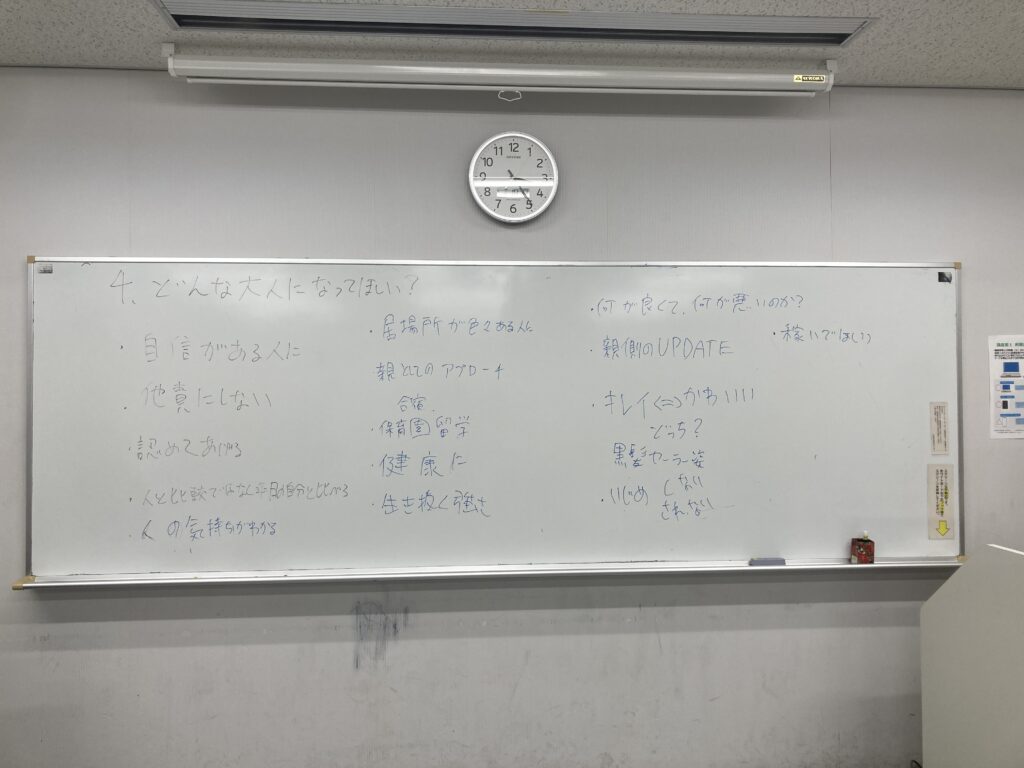 4、どんな大人になってほしい?
・自信がある人に
・他責にしない
・認めてあげる
・人と比較ではなく昨日の自分と比べる
・人の気持ちがわかる
・居場所が色々ある人に
親としてのアプローチ
合宿
・保育園留学
・健康に
・生き抜く強さ
・何が良くて、何が悪いのか?
・親側のUPDATE
・キレイ⇔かわいいい
どっち?
黒髪セーラー姿
・いじめ しない
されない
・稼いでほしい
12
1
2
3
4
5
6
7
8
9
10
11